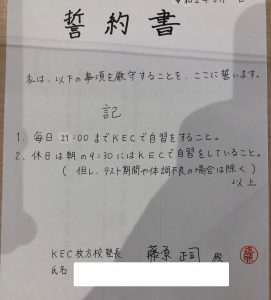 誓約書
私は、以下の事項を厳守することを、ここに誓います。
記
1、毎日 21:00 までKECで自習をすること。
2、休日は朝の9:30にはKECで自習をしていること。
(但し、テスト期間や体調不良の場合は除く)
以上
KEC枚方校塾長 藤原 正司 殿
氏名